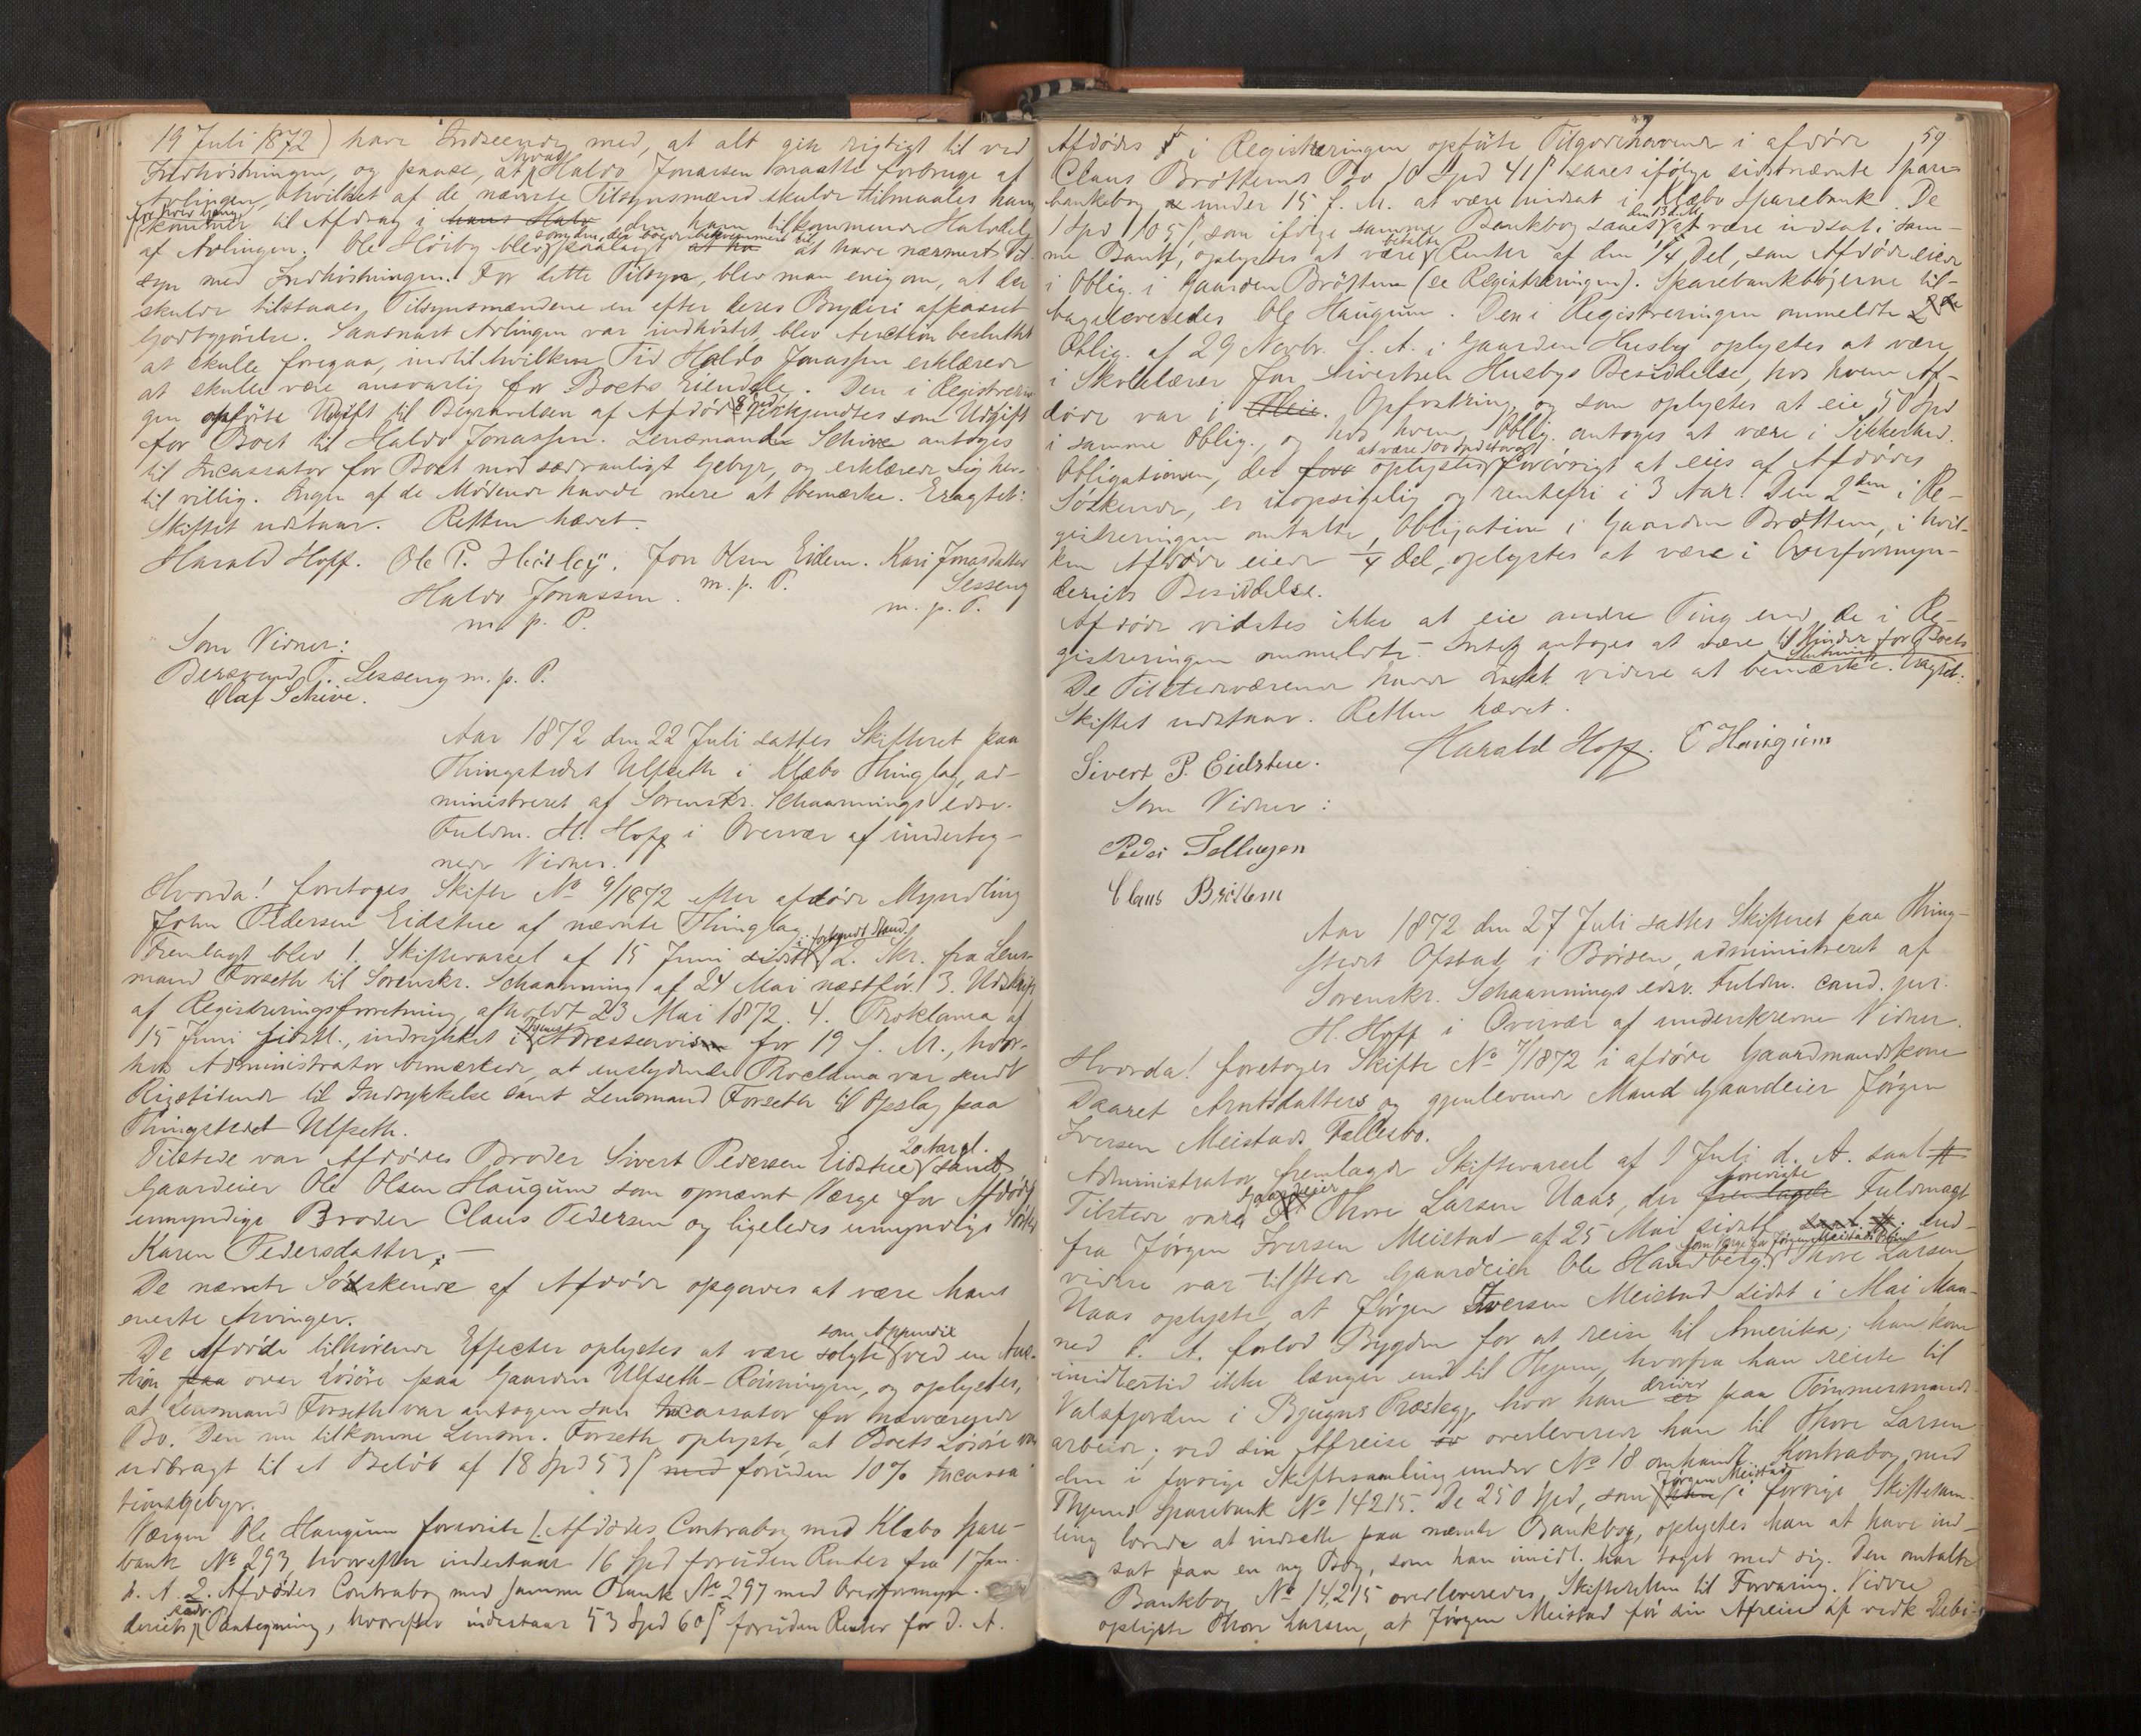 19 Juli 1872) have Indseende med, at alt gik rigtigt til ved
Indhøstningen, og paase, at hvad Haldo Jonassen maatte forbruge af
Avlingen, hvilket af de nævnte Tilsynsmænd skulde tilmaales ham
for hver Gang, kommer til Afdrag i hans Halv den ham tilkommende Halvdel
af Avlingen. Ole Hörby blev som den, der boede bekvemmest til paalagt at ha at have nærmest Til-
syn med Indhöstningen. For dette Tilsyn, blev man enig om, at der
skulde tilstaaes Tilsynsmændene en efter deres Bryderi afpasset
Godtgjörelse. Saasnart Avlingen var indhöstet, blev Auction besluttet
at skulle foregaa, indtil hvilken Tid Haldo Jonassen erklærede
at skulle være ansvarlig for Boets Eiendele. Den i Registrerin-
gen opförte Udgift til Begravelsen af Afdöde 8 Spd erkjendtes som Udgift
for Boet til Haldo Jonassen. Lensmand Schive antoges
til Incassator for Boet mod sædvanligt Gebyr, og erklærede sig her-
til villig. Ingen af de Mödende havde mere at bemærke. Eragtet:
Skiftet udstaar. Retten hævet.
Harald Hoff. Ole P. Heidley. Jon Olsen Eidem. Kari Jonasdatter
Haldo Jonassen. m. p. P. Sesseng
m. p. P. m. p. P.
Som Vidner:
Bersvend T. Sesseng m. p. P.
Olaf Schive.
Aar 1872 den 22 Juli sattes Skifteret paa
Thingstedet Ulfseth i Klæbo Thinglag, ad-
ministreret af Sorenskr. Schaannings edsv.
Fuldm. H. Hoff i Overvær af underteg-
nede Vidner.
Hvorda! foretoges Skifte No 9/1872 efter afdöde Myndling
John Pedersen Eidstue af nævnte Thinglag.
Fremlagt blev 1. Skiftevarsel af 15 Juni sidstl. i forkyndt Stand. 2. Skr. fra Lens-
mand Forseth til Sorenskr. Schaanning af 24 Mai næstfór. 3. Udskrift
af Registreringsforretning, afholdt 23 Mai 1872. 4. Proklama af
15 Juni sidstl., indrykket i Thjems Adresseavis for 19 s. M., hvor-
hos Administrator bemærkede, at enslydende Proclama var sendt
Rigstidende til Indrykkelse samt Lensmand Forseth til Opslag paa
Thingstedet Ulfseth.
Tilstede var Afdödes Broder Sivert Pedersen Eidstue 20 Aar gl. samt
Gaardeier Ole Olsen Haugum som opnævnt Værge for Afdödes
umyndige Broder Claus Pedersen og ligeledes umyndige Söster
Karen Pedersdatter. —
De nævnte Södskende af Afdöde opgaves at være hans
eneste Arvinger.
De Afdöde tilhörende Effecter oplystes at være solgte som Appendix ved en Auc-
tion paa over Lösöre paa Gaarden Ulfseth-Rönningen, og oplystes,
at Lensmand Forseth var antagen som Incassator for nærværende
Bo. Den nu tilkomne Lensm. Forseth oplyste, at Boets Lösöre var
udbragt til et Belöb af 18 Spd 53 ß med foruden 10 % Incassa-
tionsgebyr.
Værgen Ole Haugum foreviste 1. Afdödes Contrabog med Klæbo Spare-
bank No 293, hvorefter indestaar 16 Spd foruden Renter fra 1 Jan.
d. A. 2. Afdödes Contrabog med samme Bank No 297 med Overformyn-
deriets sædv. Paategning, hvorefter indestaar 53 Spd 60 ß foruden Renter for d. A.
59
Afdödes i Registreringen opförte Tilgodehavende i afdöde
Claus Bröttems Bo 10 Spd 41 ß saaes ifölge sidstnævnte Spare-
bankbog under 15 f. M. at være indsat i Klæbo Sparebank. De
1 Spd 105 ß, som ifölge samme Bankbog saaes den 13 d. M. at være indsat i sam-
me Bank, oplystes at være betalte Renter af den 1/4 Del, som Afdöde eiede
i Oblig. i Gaarden Bröttem (se Registreringen). Sparebankbögerne til-
bageleveredes Ole Haugum. Den i Registreringen ommeldte
Oblig. af 29 Novbr. f. A. i Gaarden Husby oplystes at være
i Skolelærer Jon Sivertsen Husbys Besiddelse, hos hvem Af-
döde var i Opfostring, og som oplystes at eie 50 Spd
i samme Oblig., og hos hvem Oblig. antoges at være i Sikkerhed.
Obligationen, der oplystes at være 100 Spd stor og forövrigt at eies af Afdödes
Söskende, er uopsigelig og rentefri i 3 Aar. Den 2den i Re-
gistreringen omtalte Obligation i Gaarden Bröttem, i hvil-
ken Afdöde eiede 1/4 Del, oplystes at være i Overformyn-
deriets Besiddelse.
Afdöde vidstes ikke at eie andre Ting end de i Re-
gistreringen ommeldte. — Intet antoges at være til Hinder for Boets Slutning.
De Tilstedeværende havde Intet videre at bemærke. Eragtet:
Skiftet udstaar. Retten hævet.
Sivert P. Eidstue. Harald Hoff. O Haugum
Som Vidner:
Peder Tellugen
Claus Bröttem
Aar 1872 den 27 Juli sattes Skifteret paa Thing-
stedet Ofstad i Börsen, administreret af
Sorenskr. Schaannings edsv. Fuldm. cand. jur.
H. Hoff i Overvær af underskrevne Vidner.
Hvorda! foretoges Skifte No 7/1872 i afdöde Gaardmandskone
Daaret Arntsdatters og gjenlevende Mand Gaardeier Jörgen
Iversen Meistads Fællesbo.
Administrator fremlagde Skiftevarsel af 1 Juli d. A. saal.
Tilstede vare Gaardeier Thore Larsen Uaas, der foreviste fremlagde Fuldmagt
fra Jörgen Iversen Meistad af 25 Mai sidstl. End-
videre var tilstede Gaardeier Ole Haudberg, som Værge for Jörgen Meistads Börn. Thore Larsen
Uaas oplyste, at Jörgen Iversen Meistad sidst i Mai Maa-
ned d. A. forlod Bygden for at reise til Amerika; han kom
imidlertid ikke længer end til Thjem, hvorfra han reiste til
Valsfjorden i Bjugns Præstegj. hvor han er driver paa Tömmermands-
arbeide; ved sin Afreise overleverede han til Thore Larsen
den i forrige Skiftesamling under No 18 omhandl. Kontrabog med
Thjems Sparebank No 14215. De 250 Spd, som Jörgen Meistad i forrige Skiftesam-
ling lovede at indsætte paa nævnte Bankbog, oplystes han at have ind-
sat paa en ny Bog, som han imidl. har taget med sig. Den omtalte
Bankbog No 14,215 overleveredes Skifteretten til Forvaring. Videre
oplyste Thore Larsen, at Jörgen Meistad för sin Afreise af vedk. Debi-